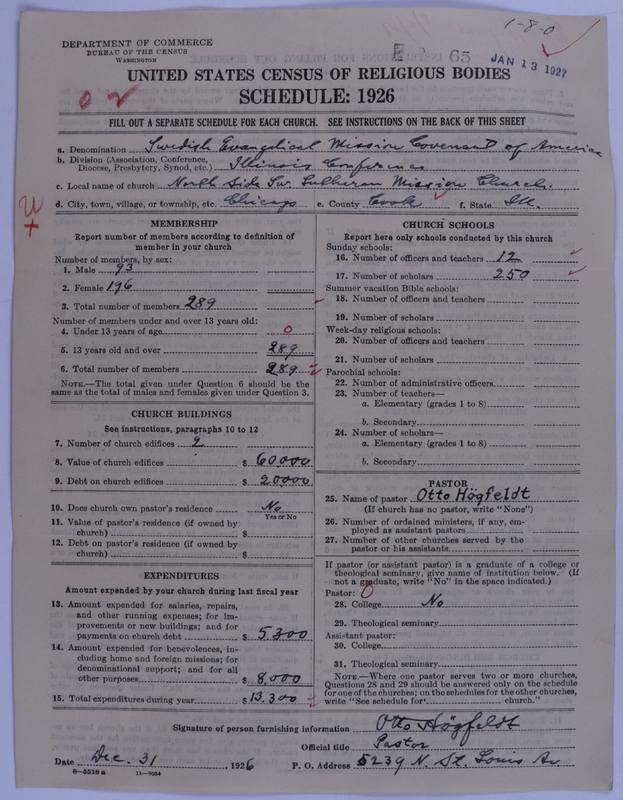 1-8-0
DEPARTMENT OF COMMERCE
BUREAU OF THE CENSUS
WASHINGTON
E 65
JAN 13 1927
UNITED STATES CENSUS OF RELIGIOUS BODIES
SCHEDULE: 1926
FILL OUT A SEPARATE SCHEDULE FOR EACH CHURCH. SEE INSTRUCTIONS ON THE BACK OF THIS SHEET
a. Denomination Swedish Evangelical Mission Covenant of America
b. Division (Association, Conference, Diocese, Presbytery, Synod, etc.) Illinois Conference
c. Local name of church North Side Sw. Lutheran Mission Church.
d. City, town, village, or township, etc. Chicago e. County Cook f. State Ill.
MEMBERSHIP
Report number of members according to definition of
member in your church
Number of members, by sex:
1. Male 93
2. Female 196
3. Total number of members 289
Number of members under and over 13 years old:
4. Under 13 years of age 0
5. 13 years old and over 289
6. Total number of members 289
NOTE.—The total given under Question 6 should be the
same as the total of males and females given under Question 3.
CHURCH BUILDINGS
See instructions, paragraphs 10 to 12
7. Number of church edifices 2
8. Value of church edifices $ 60,000
9. Debt on church edifices $ 20,000
10. Does church own pastor's residence No
Yes or No
11. Value of pastor's residence (if owned by
church) $
12. Debt on pastor's residence (if owned by
church) $
EXPENDITURES
Amount expended by your church during last fiscal year
13. Amount expended for salaries, repairs,
and other running expenses; for im-
provements or new buildings; and for
payments on church debt $ 5,300
14. Amount expended for benevolences, in-
cluding home and foreign missions; for
denominational support; and for all
other purposes $ 8,000
15. Total expenditures during year $ 13,300
CHURCH SCHOOLS
Report here only schools conducted by this church
Sunday schools:
16. Number of officers and teachers 12
17. Number of scholars 250
Summer vacation Bible schools:
18. Number of officers and teachers
19. Number of scholars
Week-day religious schools:
20. Number of officers and teachers
21. Number of scholars
Parochial schools:
22. Number of administrative officers
23. Number of teachers—
a. Elementary (grades 1 to 8)
b. Secondary
24. Number of scholars—
a. Elementary (grades 1 to 8)
b. Secondary
PASTOR
25. Name of pastor Otto Högfeldt
(If church has no pastor, write "None")
26. Number of ordained ministers, if any, em-
ployed as assistant pastors
27. Number of other churches served by the
pastor or his assistants
If pastor (or assistant pastor) is a graduate of a college or
theological seminary, give name of institution below. (If
not a graduate, write "No" in the space indicated.)
Pastor:
28. College No
29. Theological seminary
Assistant pastor:
30. College
31. Theological seminary
NOTE.—Where one pastor serves two or more churches,
Questions 28 and 29 should be answered only on the schedule
for one of the churches; on the schedules for the other churches,
write "See schedule for church."
Signature of person furnishing information Otto Högfeldt
Official title Pastor
Date Dec. 31, 1926 P. O. Address 5239 N. St. Louis Av
8-5518 a 11-9034